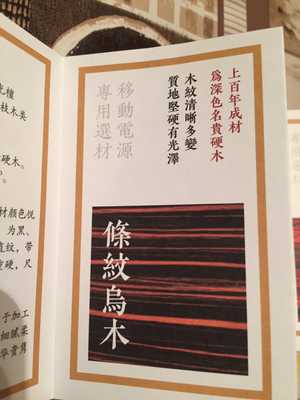 上百年成材
爲深色名貴硬木
木紋清晰多變
質地堅硬有光澤
移動電源
專用選材
條紋烏木
枝木类
硬木。
材颜色悦
为黑、
直纹，带
硬，尺
于加工
细腻柔
华贵隽